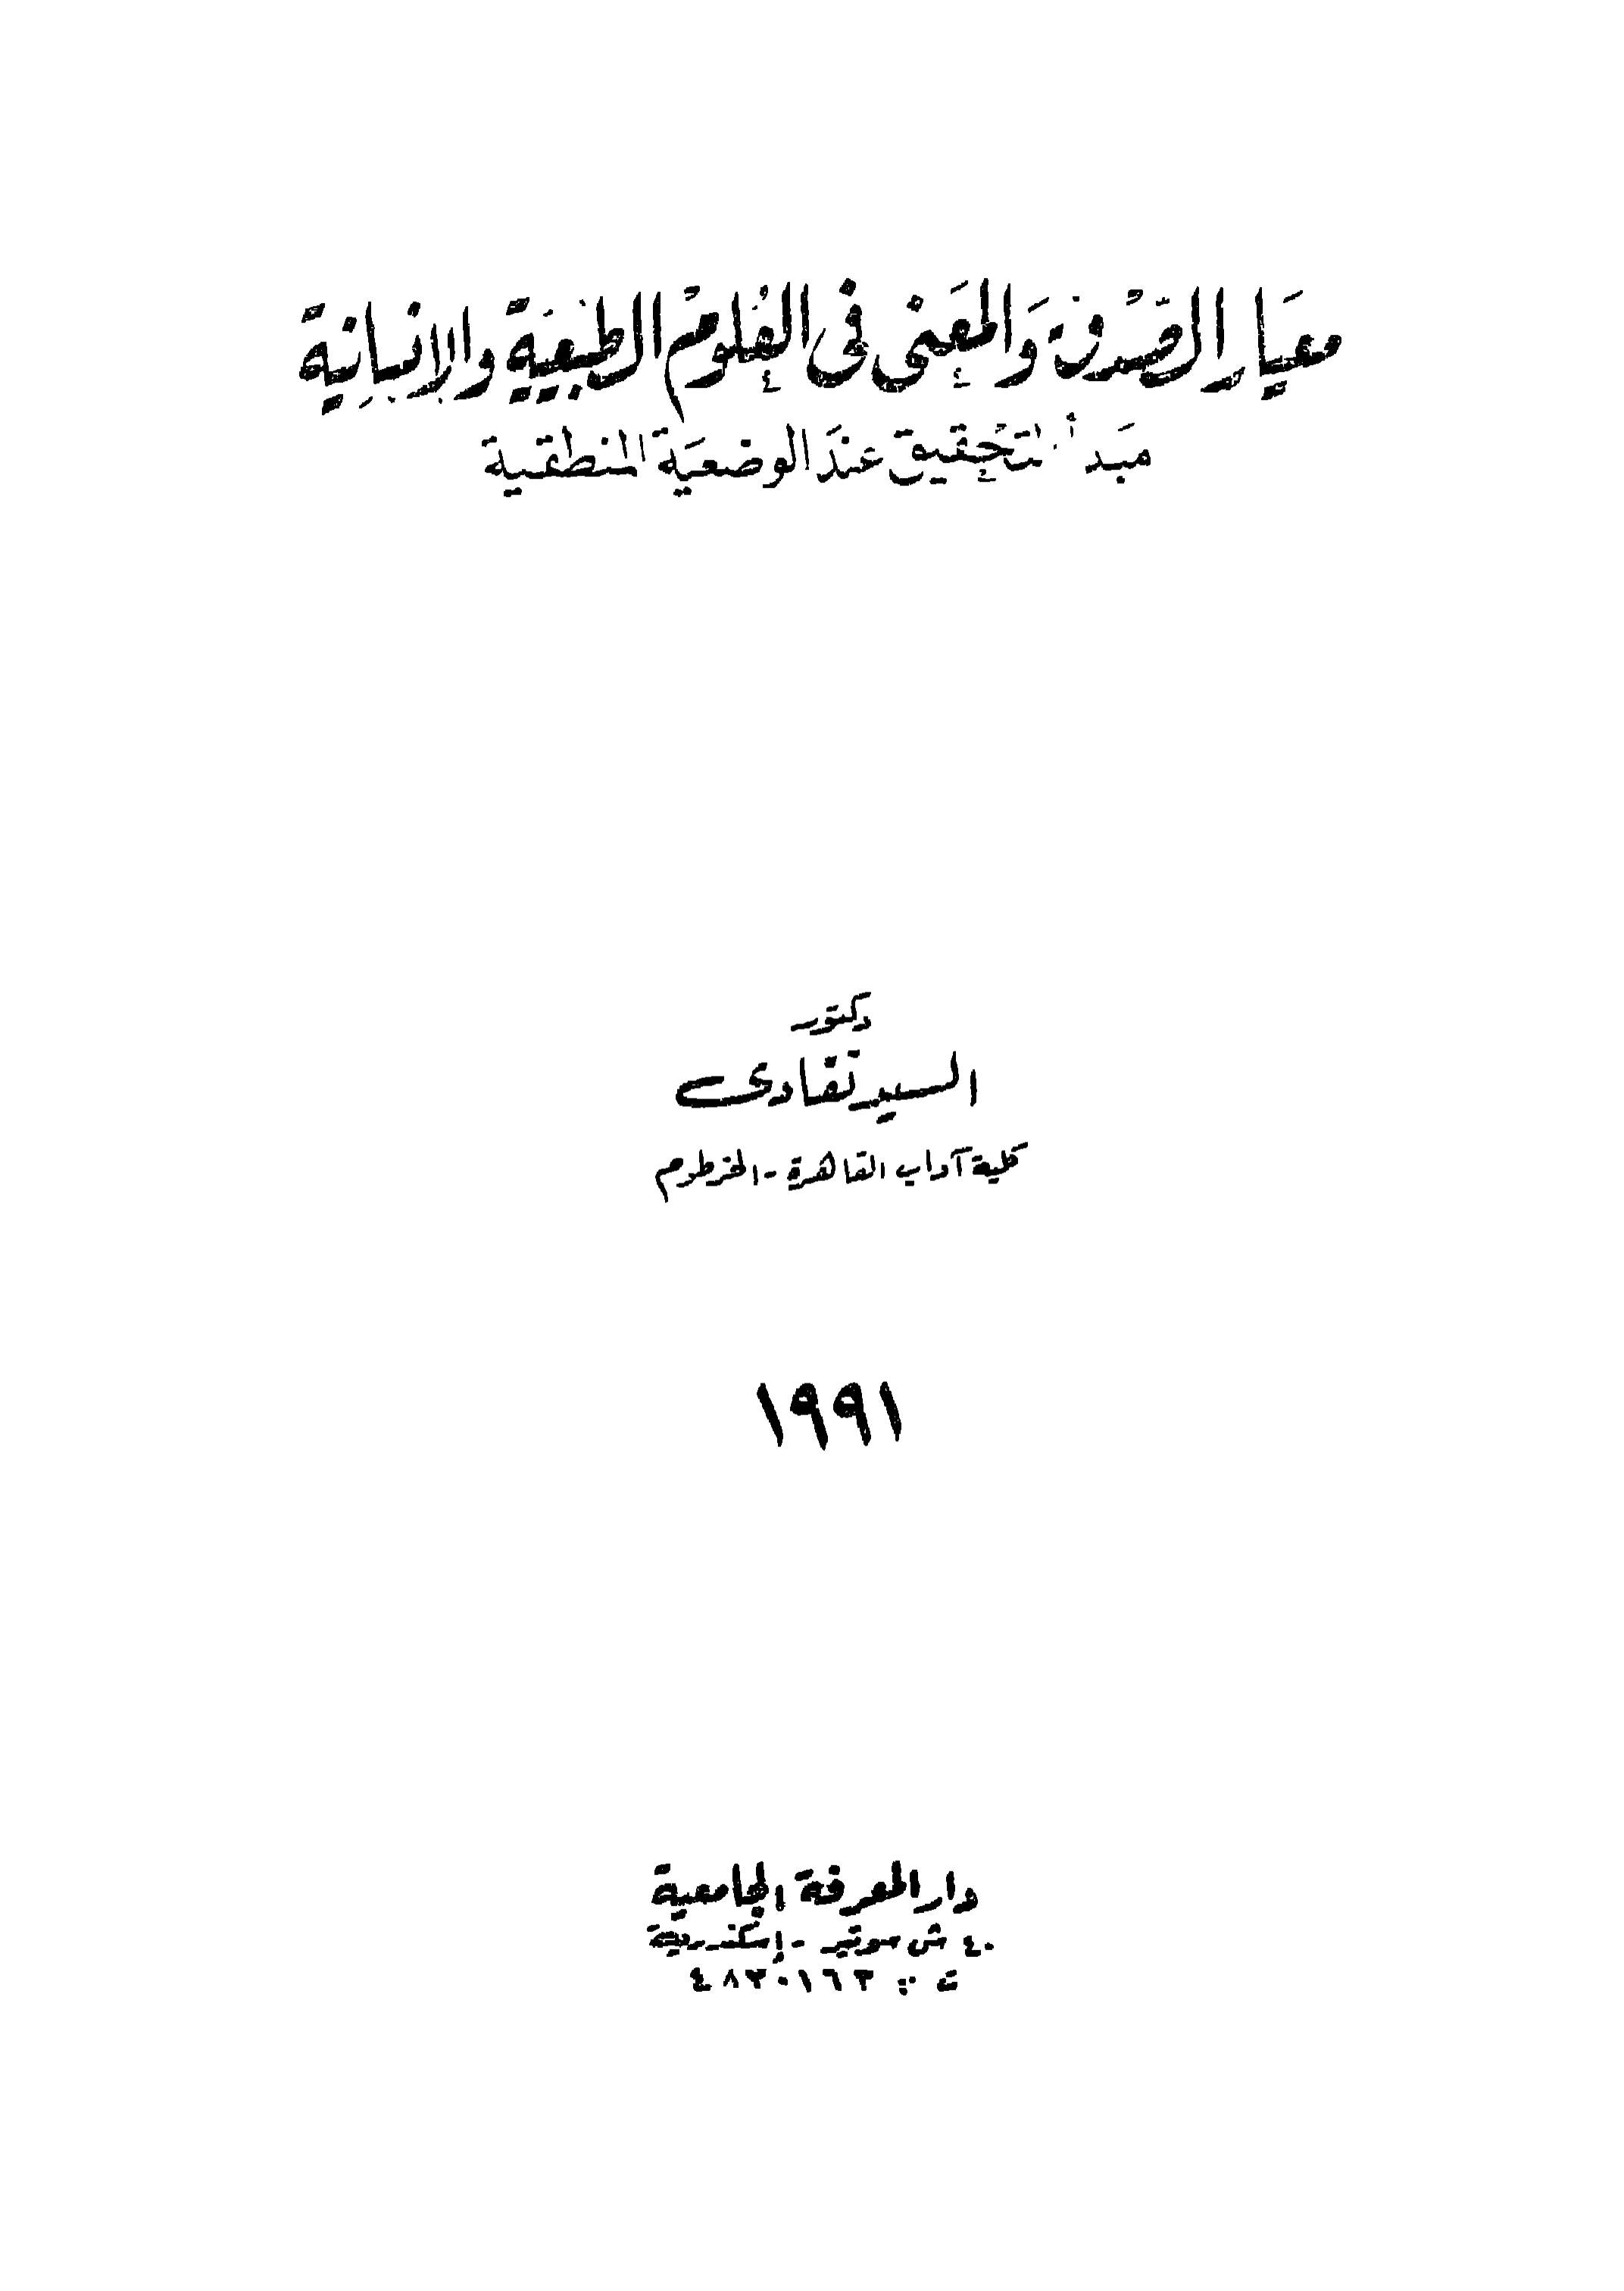 معيار الصدق والمعنى فى العلوم الطبيعية والإنسانية
مبدأ التحقيق عند الوضعية المنطقية
دكتور
السيد نفادى
كلية آداب القاهرة - الخرطوم
١٩٩١
دار المعرفة الجامعية
٤٠ ش سوتير - إسكندرية
ت : ٤٨٣٠١٦٣